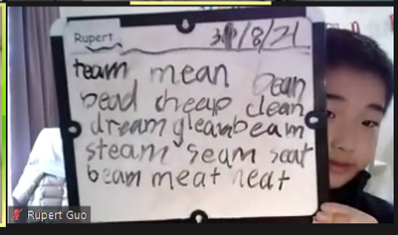 Rupert 31/8/21
team mean bean
bead cheap clean
dream gleam beam
steam seam seat
beam meat neat
Rupert Guo